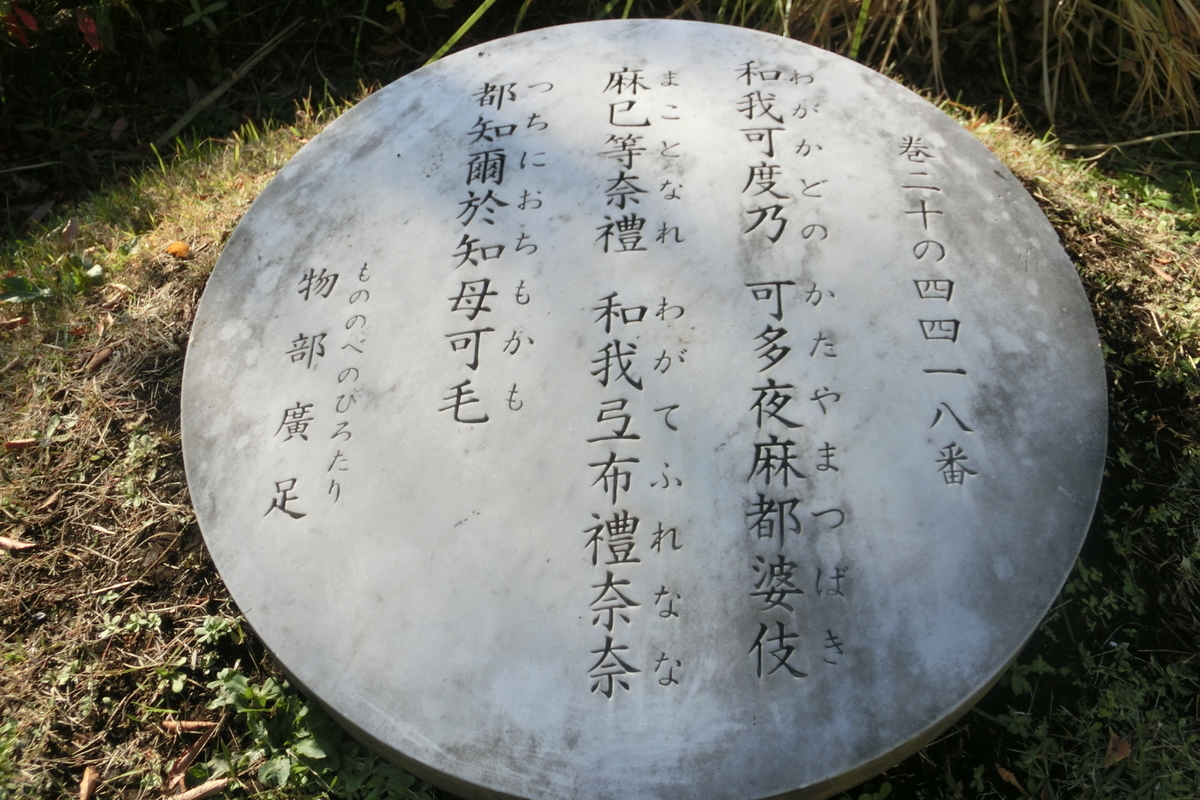 巻二十の四四一八番
わがかどの　かたやまつばき
和我可度乃　可多夜麻都婆伎
まことなれ　わがてふれなな
麻已等奈禮　和我弖布禮奈奈
つちにおちもかも
都知爾於知母可毛
もののべのひろたり
物部廣足